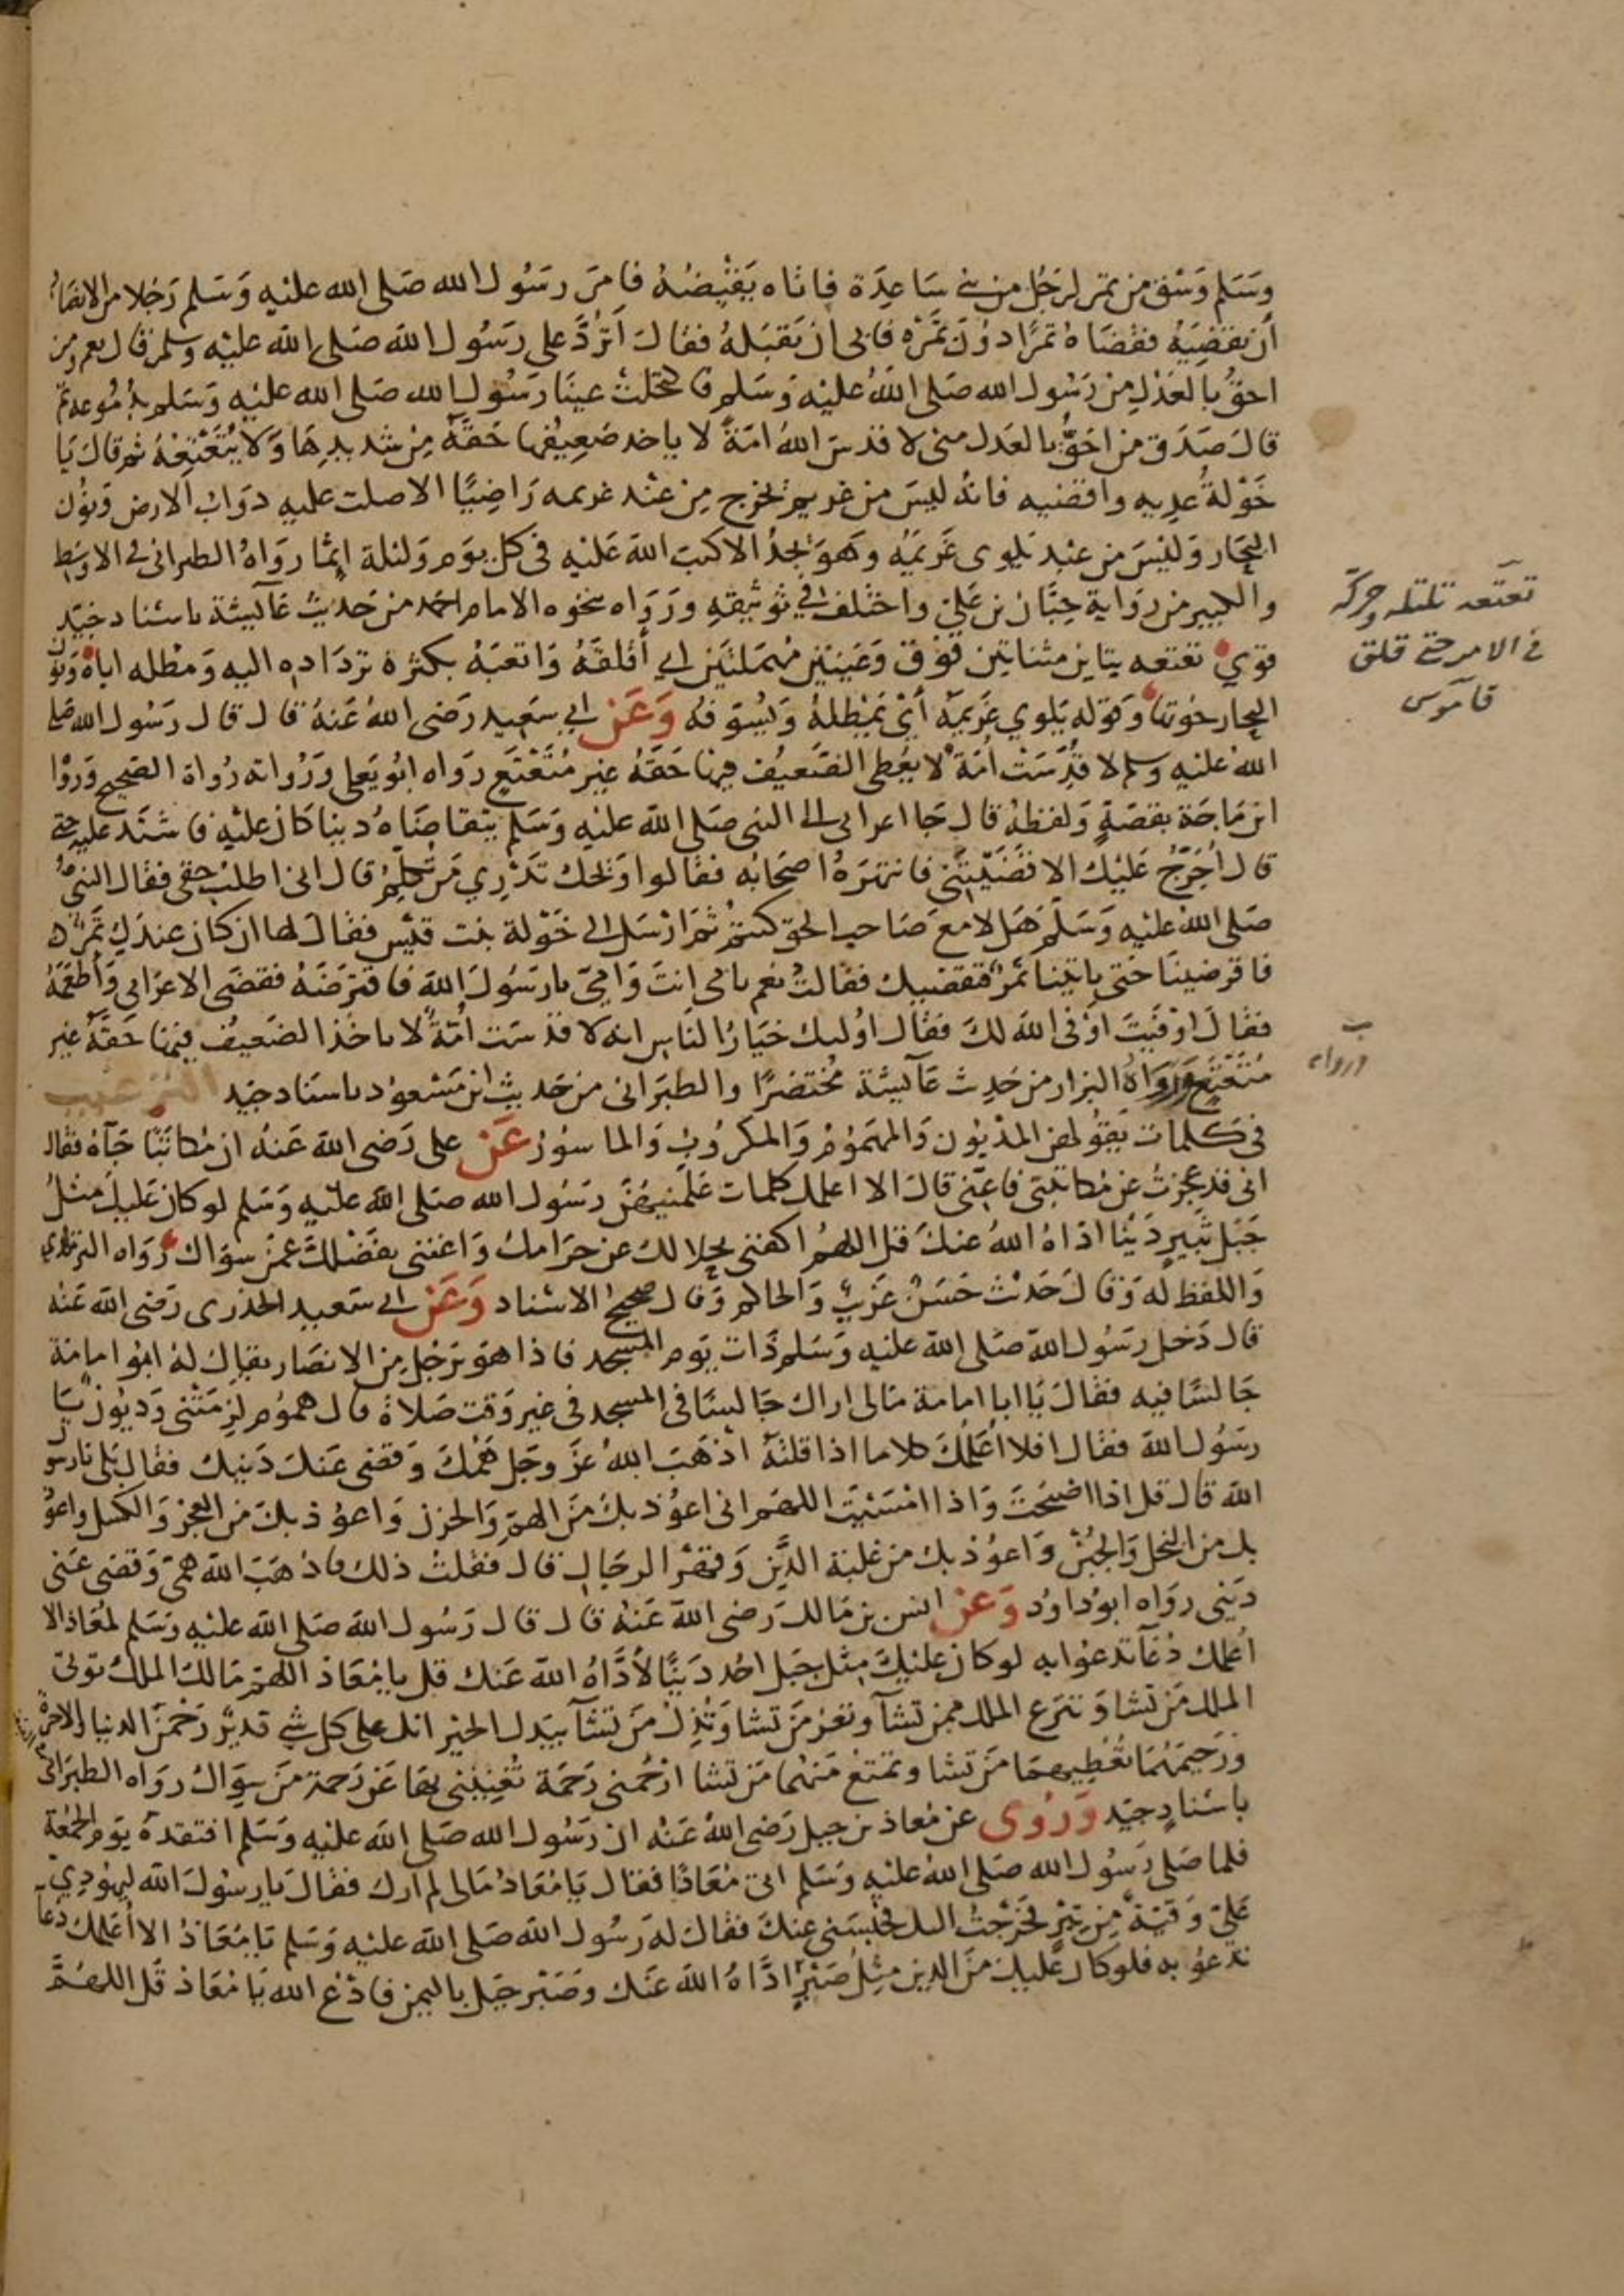 وَسَلم وَسْق من تمر لرَجُل من بني سَاعِدَة فاتاه يَقتَضيهُ فامَرَ رسَوُل الله صَلى الله عليْهِ وَسَلم رَجُلا من الانصَار
أن يقضيَهُ فقضَاهُ تمرًا دوُنَ تمَرْه فابى ان يَقبَلهُ فقالَ اَتَرُدَّ على رسَوُل الله صَلى الله عليْه وسلم قال نعم ومن
احقُّ بالعَدْلِ من رسَوُل الله صَلى اللهُ عليْه وَسَلم فاكتحلتْ عينَا رَسُول الله صَلى الله عليْه وَسَلم بدُمُوعه ثم
قالَ صَدَق من احَقُّ بالعَدل منى لا قدسَ اللهُ امّةً لا ياخد ضَعِيفُها حَقهُ مِن شديدِهَا وَلا يُتَعْتِعُهُ ثم قال يَا
خَوْلةُ عِدِيهِ وَاقضيه فانهُ ليسَ من غريم يخرُج مِن عندِ غريمه رَاضِيًا الا صلت عليه دوَابُ الارض وَنوُن
البِحَار وَليْسَ من عبْد يَلوى غريمُه وهَوَ يَجدُ الا كتبَ الله عَليْه فى كل يوم وَليْلة اِثمًا روَاهُ الطبرانى فى الاوسَط
والكبير من روَاية حِبَّان بن عَلىّ واختُلف فى توثيقهِ ورَوَاه بنحوه الامام احمد من حَديث عآئيشة باسْناد جَيّد
قوي تعتعه بتاين مثناتين فوْق وَعيْنينِ مُهمَلتَين اي أقْلقَهُ وَاتعَبَهُ بكثرَة تردَاده اليه وَمَطله اياه وَنون
البحار حوُتها وَقوْله يَلوي غَريمَهُ أيْ يَمْطلهُ وَيُسَوّفهُ وَعَنْ ابي سَعِيد رَضى اللهُ عَنهُ قال قال رسَوُل الله صَلى
اللهُ عَليْه وسلم لا قدِّسَتْ أمّةٌ لا يُعْطى الضّعِيفُ فيهَا حَقهُ غيرَ مُتَعْتَعٍ رَواه ابُو يَعلى وَرُواته رُواة الصحيح وَروَا
ابن مَاجَة بقصّةٍ وَلفظهُ قال جَا اعرابى الى النبى صَلى الله عليْه وَسَلم يتقاضَاهُ دينا كانَ عليْه فاشتَد عليه حتى
قال أُحَرّجُ عَليْك الا قضيْتَنى فانتهَرَهُ اصحَابه فقالوا وَيحَك تَدْري مَن تُكلِمُ قال انى اطلبُ حقى فقال النبى
صَلى اللهُ عليْه وَسَلم هَلا مع صَاحب الحق كنتمُ ثم ارْسَل الى خَوْلة بنت قيْس فقال لها ان كان عندَكِ تمرٌ
فاقرضينَا حَتى ياتينا تمرٌ فنقضيك فقالتْ نعم بابى انتَ وَامىّ يارسَوُلَ الله فاقترَضَهُ فقضى الاعرَابى وَأطعَمَهُ
فقالَ اوْفَيتَ اوْفى الله لكَ فقال اوُليك خيَارُ الناس انه لا قدسَت اُمّةٌ لا ياخُذ الضَعيفُ فيْهَا حَقهُ غير
مُتَعْتَعٍ وَرَوَاهُ البزار من حَدِيث عَآئيشة مُختصَرًا والطبَرانى من حَديث ابن مَسْعوُد باسنَاد جيد الترغيب
فى كلمات يَقوُلهن المدْيُون وَالمهمَوُمُ وَالمكروُبُ وَالماسوُرُ عَنْ على رَضى الله عَنهُ ان مُكاتبًا جَآهُ فقال
انى قد عجَزتُ عن مُكاتبتى فاعِنّى قالَ الا اعلمك كلمات عَلمَنيهُنّ رسَوُل الله صَلى الله عليْه وَسَلم لوكان عَليكَ مثلُ
جَبل ثبِيرٍ دَيْنًا ادّاهُ اللهُ عنكَ قل اللهم اكفنى بحِلالكَ عن حرَامكَ وَاغننى بفضْلكَ عمنْ سوَاكَ رَوَاه الترمذى
وَاللفظ لَه وَقالَ حَديْث حَسَن غَريبٌ وَالحاكم وَقال صحيح الاسْناد وَعَنْ ابى سَعيد الخدْرى رَضى الله عَنه
قال دَخل رسَوُل الله صَلى الله عليْه وَسَلم ذَات يَوم المسجد فاذا هوَ برَجُل من الانصَار يقال لهُ ابوُ امامة
جَالسًا فيه فقالَ يَا ابا امامة مَالى اراك جَالسًا فى المسجد فى غير وَقت صَلاة قال هموُم لزمتنى وَديُونٌ يَا
رسَوُل الله فقال افلا اُعَلمُكَ كلاما اذا قلتهُ اذْهَبَ اللهُ عزّ وجَل هَمّكَ وَقضى عَنكَ دَيْنك فقال بَلى يَارسوُل
الله قال قل اذا اصْبَحْتَ وَاذا امْسَيْتَ اللهمَ انى اعوُذ بكَ مَن الهمّ وَالحزن وَاعوُذ بكَ من العَجز وَالكسل واعوُ
بك من البخل وَالجُبْن وَاعوُذ بك من غلبَة الدَّين وَقهْر الرجَال قال ففعَلتُ ذلك فاذهَبَ الله همّى وَقضى عَنى
دَيني روَاه ابوُ داوُد وَعَن انس بن مَالك رَضى الله عَنهُ قال قال رَسُول الله صَلى الله عليْه وَسَلم لمُعَاذ الا
اُعلمك دُعَآ تدعوُا به لوكان عليْكَ مثل جَبل احُد دَينًا لأدَّاهُ الله عَنك قل يامُعَاذ اللهمَ مَالكَ الملكِ توتى
الملك مَن تشا وَتنزع الملك ممن تشآ وتعزُ مَن تشا وَتُذِلُ مَن تشآ بيَدك الخير انك على كل شى قديرٌ رَحْمن الدنيا والاخرة
ورَحِيمَهُمَا تُعْطِيهمَا مَن تشا وتمنَعُ منهُما مَن تشا ارْحَمنى رَحمَة تُغْنِينى بهَا عَن رَحمة مَن سِوَاكَ روَاه الطبرَانى
باسْنادٍ جيّد وَرُوى عن مُعاذ بن جبل رَضى اللهُ عَنْه ان رسَوُل الله صَلى الله عليْه وَسَلم افتقدهُ يوَم الجُمُعَة
فلما صَلى رسَوُل الله صَلى اللهُ عليْه وَسَلم اتى مُعَاذًا فقال يَا مُعَاذُ مَالى لم ارك فقال يا رسُوْلَ الله ليهُودىٍّ
عَلىّ وَقِيّةٌ مِن تِبْرٍ فخَرَجْتُ اليك فحبَسَنى عنكَ فقالَ له رَسُول الله صَلى الله عليْه وَسَلم يَا مُعَاذُ الا اُعَلمكَ دعآً
تدعوُ به فلوكان عَليكَ مَن الدين مِثلُ صَبْرٍ ادّاهُ الله عَنك وَصَبْر جَبل باليمن فادْعُ الله يَا مُعَاذ قل اللهُمَّ
تعتعه تلتله وحركه
فى الامر حتى قلق
قاموس
ورواه